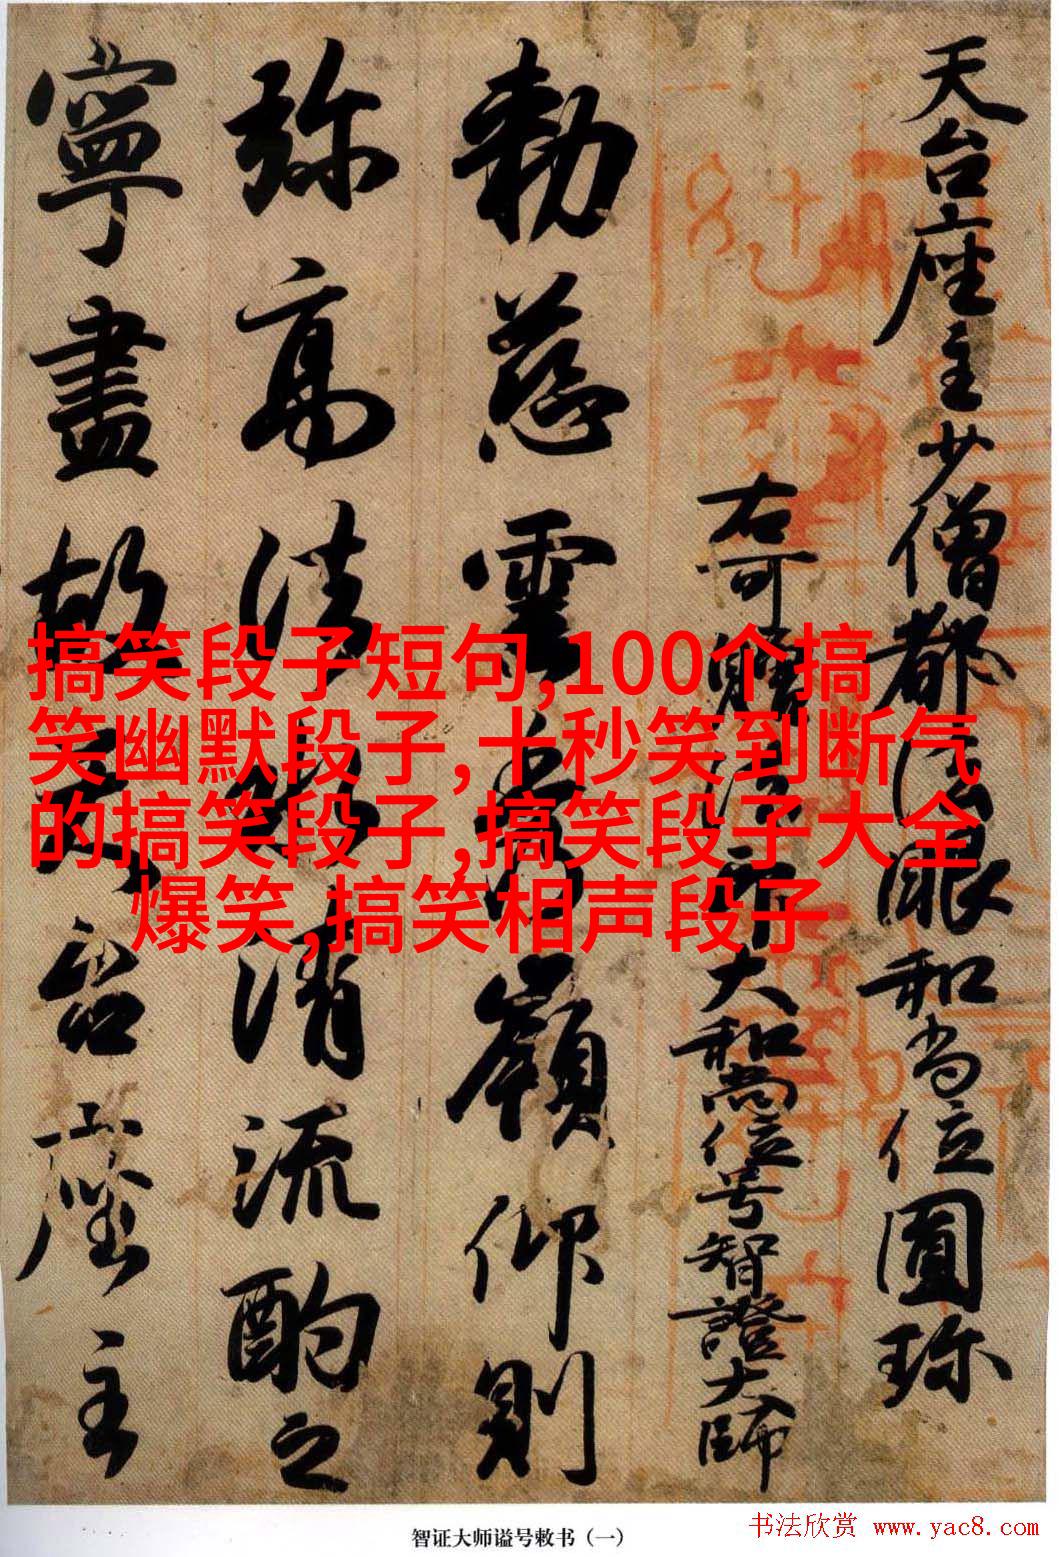 天台座主少僧都法眼和尚位圓珍
右可贈法印大和尚位号智證大師
勅慈雲秀嶺仰則
弥高法水清流酌之
寧盡故天台座主
搞笑段子短句,100个搞
笑幽默段子,十秒笑到断气
的搞笑段子,搞笑段子大全
爆笑,搞笑相声段子
智证大师谥号敕书（一）
书法欣赏 www.yac8.com